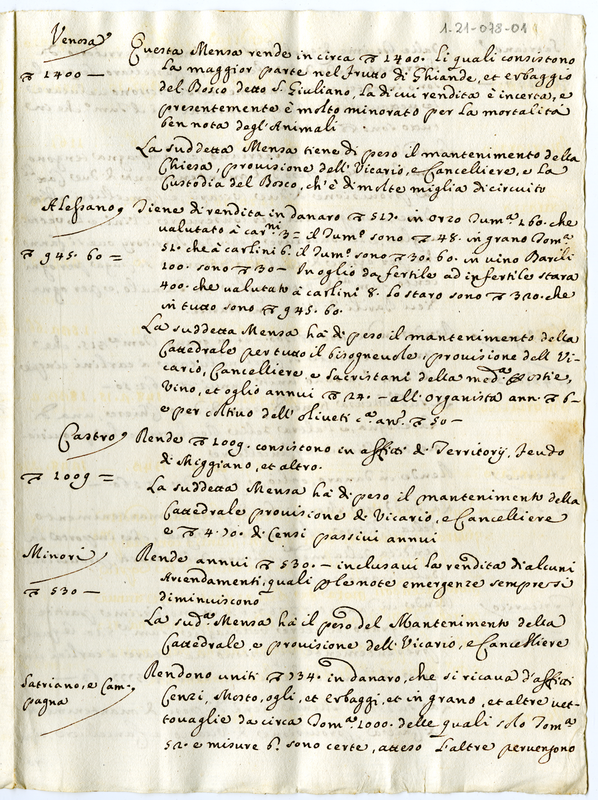 1-21-078-01
Venosa
Questa Mensa rende in circa ꝶ 1400. li quali consistono
ꝶ 1400 —
la maggior parte nel frutto di Ghiande, et erbaggio
del Bosco detto S. Giuliano, la di cui rendita è incerta, e
presentemente è molto minorato per la mortalità
ben nota degl'Animali
La suddetta Mensa tiene di peso il mantenimento della
Chiesa, provisione dell'Vicario, e Cancelliere, e la
Custodia del Bosco, ch'è di molte miglia di circuito
Alessano
Tiene di rendita in danaro ꝶ 517. in orzo Tum.ª 160. che
valutato à car.ni 3 = il Tum.º sono ꝶ 48. in grano Tom.ª
ꝶ 945. 60 =
51. che à carlini 6. il Tum.º sono ꝶ 30. 60. in vino Barili
100. sono ꝶ 30 — In oglio da fertile ad infertile stara
400. che valutato à carlini 8. lo staro sono ꝶ 320. che
in tutto sono ꝶ 945. 60.
La suddetta Mensa hà di peso il mantenimento della
Cattedrale per tutto il bisognevole, provisione dell Vi-
cario, Cancelliere e Sacristani della med.ª Ostie,
Vino, et oglio annui ꝶ 24. — all'organista ann. ꝶ 6 —
e per coltivo dell'oliveti c.ª an.i ꝶ 50 —
Castro
Rende ꝶ 1009. consistono in affitti di Territorij, feudo
di Miggiano, et altro.
ꝶ 1009 =
La suddetta Mensa hà di peso il mantenimento della
Cattedrale provisione di Vicario, e Cancelliere
e ꝶ 4. 70. di Censi passivi annui
Minori
Rende annui ꝶ 530. — inclusavi la rendita di alcuni
Arrendamenti, quali p le note emergenze sempre si
ꝶ 530 —
diminuiscono
La sud.ª Mensa hà il peso del Mantenimento della
Cattedrale, e provisione dell'Vicario, e Cancelliere
Satriano, e Cam-
pagna
Rendono uniti ꝶ 734. in danaro, che si ricava d'affitti
Cenzi, Mosto, ogli, et erbaggi, et in grano, et altre vet-
tovaglie da circa Tom.ª 1000. delle quali solo Tom.ª
52. e misure 6. sono certe, atteso l'altre pervengono